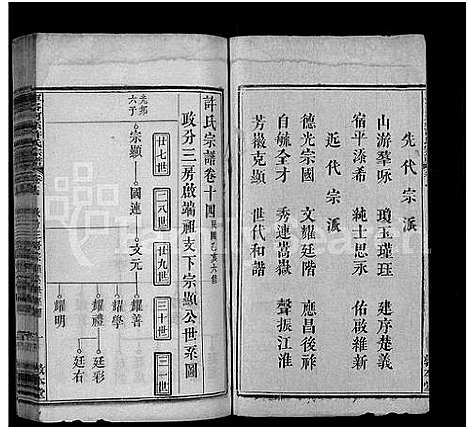 先代宗派
山游羣咏 瓊玉瑾珏 建序楚義
宿平添希 純士思永 佑啟維新
近代宗派
德光宗國 文耀廷階 應昌後祥
自毓全才 秀連蒿嶽 聲振江淮
芳徽克顯 世代和諧
許氏宗譜卷十四 民國乙亥六修
政分三房啟端祖支下宗顯公世系圖
廿七世 二八世 廿九世 三十世 三一世
光邦六子 宗顯 國連 文元 耀善
耀學
耀禮 廷彩
廷右
耀明